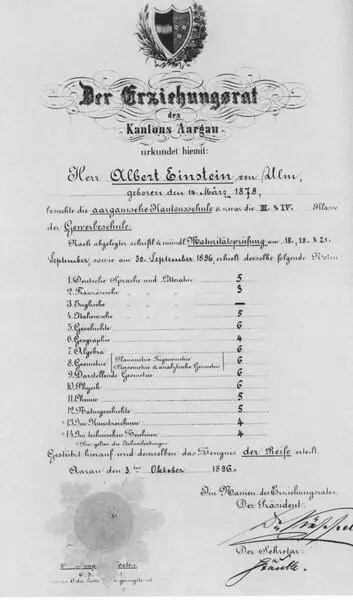 Der Erziehungsrat
des
Kantons Aargau
urkundet hiemit:
Herr Albert Einstein von Ulm,
geboren den 14. März 1879,
besuchte die aargauische Kantonsschule & zwar die III. & IV. Klasse
der Gewerbeschule.
Nach abgelegter schriftl. & mündl. Maturitätsprüfung am 18., 19. & 21.
September, sowie am 30. September 1896, erhielt derselbe folgende Noten:
1. Deutsche Sprache und Litteratur 5
2. Französische " " " 3
3. Englische " " " —
4. Italienische " " " 5
5. Geschichte 6
6. Geographie 4
7. Algebra 6
8. Geometrie Planimetrie, Trigonometrie 6
Stereometrie & analytische Geometrie 6
9. Darstellende Geometrie 6
10. Physik 6
11. Chemie 5
12. Naturgeschichte 5
*13. Im Kunstzeichnen 4
*14. Im technischen Zeichnen 4
* Hier gelten die Jahresleistungen.
Gestützt hierauf wird demselben das Zeugnis der Reife erteilt.
Aarau den 3ten Oktober 1896.
Im Namen des Erziehungsrates,
Der Präsident:
Der Sekretär: